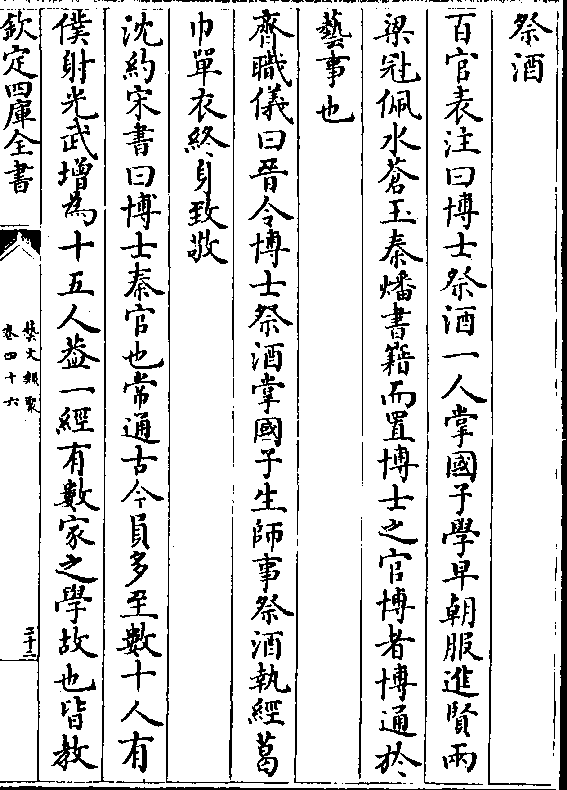 祭酒
百官表注曰博士祭酒一人掌國子學早朝服進賢兩
梁冠佩水蒼玉秦燔書籍而置博士之官博者博通於
藝事也
齊職儀曰晉令博士祭酒掌國子生師事祭酒執經葛
巾單衣終身致敬
沈約宋書曰博士秦官也常通古今員多至數十人有
僕射光武增為十五人葢一經有數家之學故也皆教
欽定四庫全書
藝文類聚
卷四十六